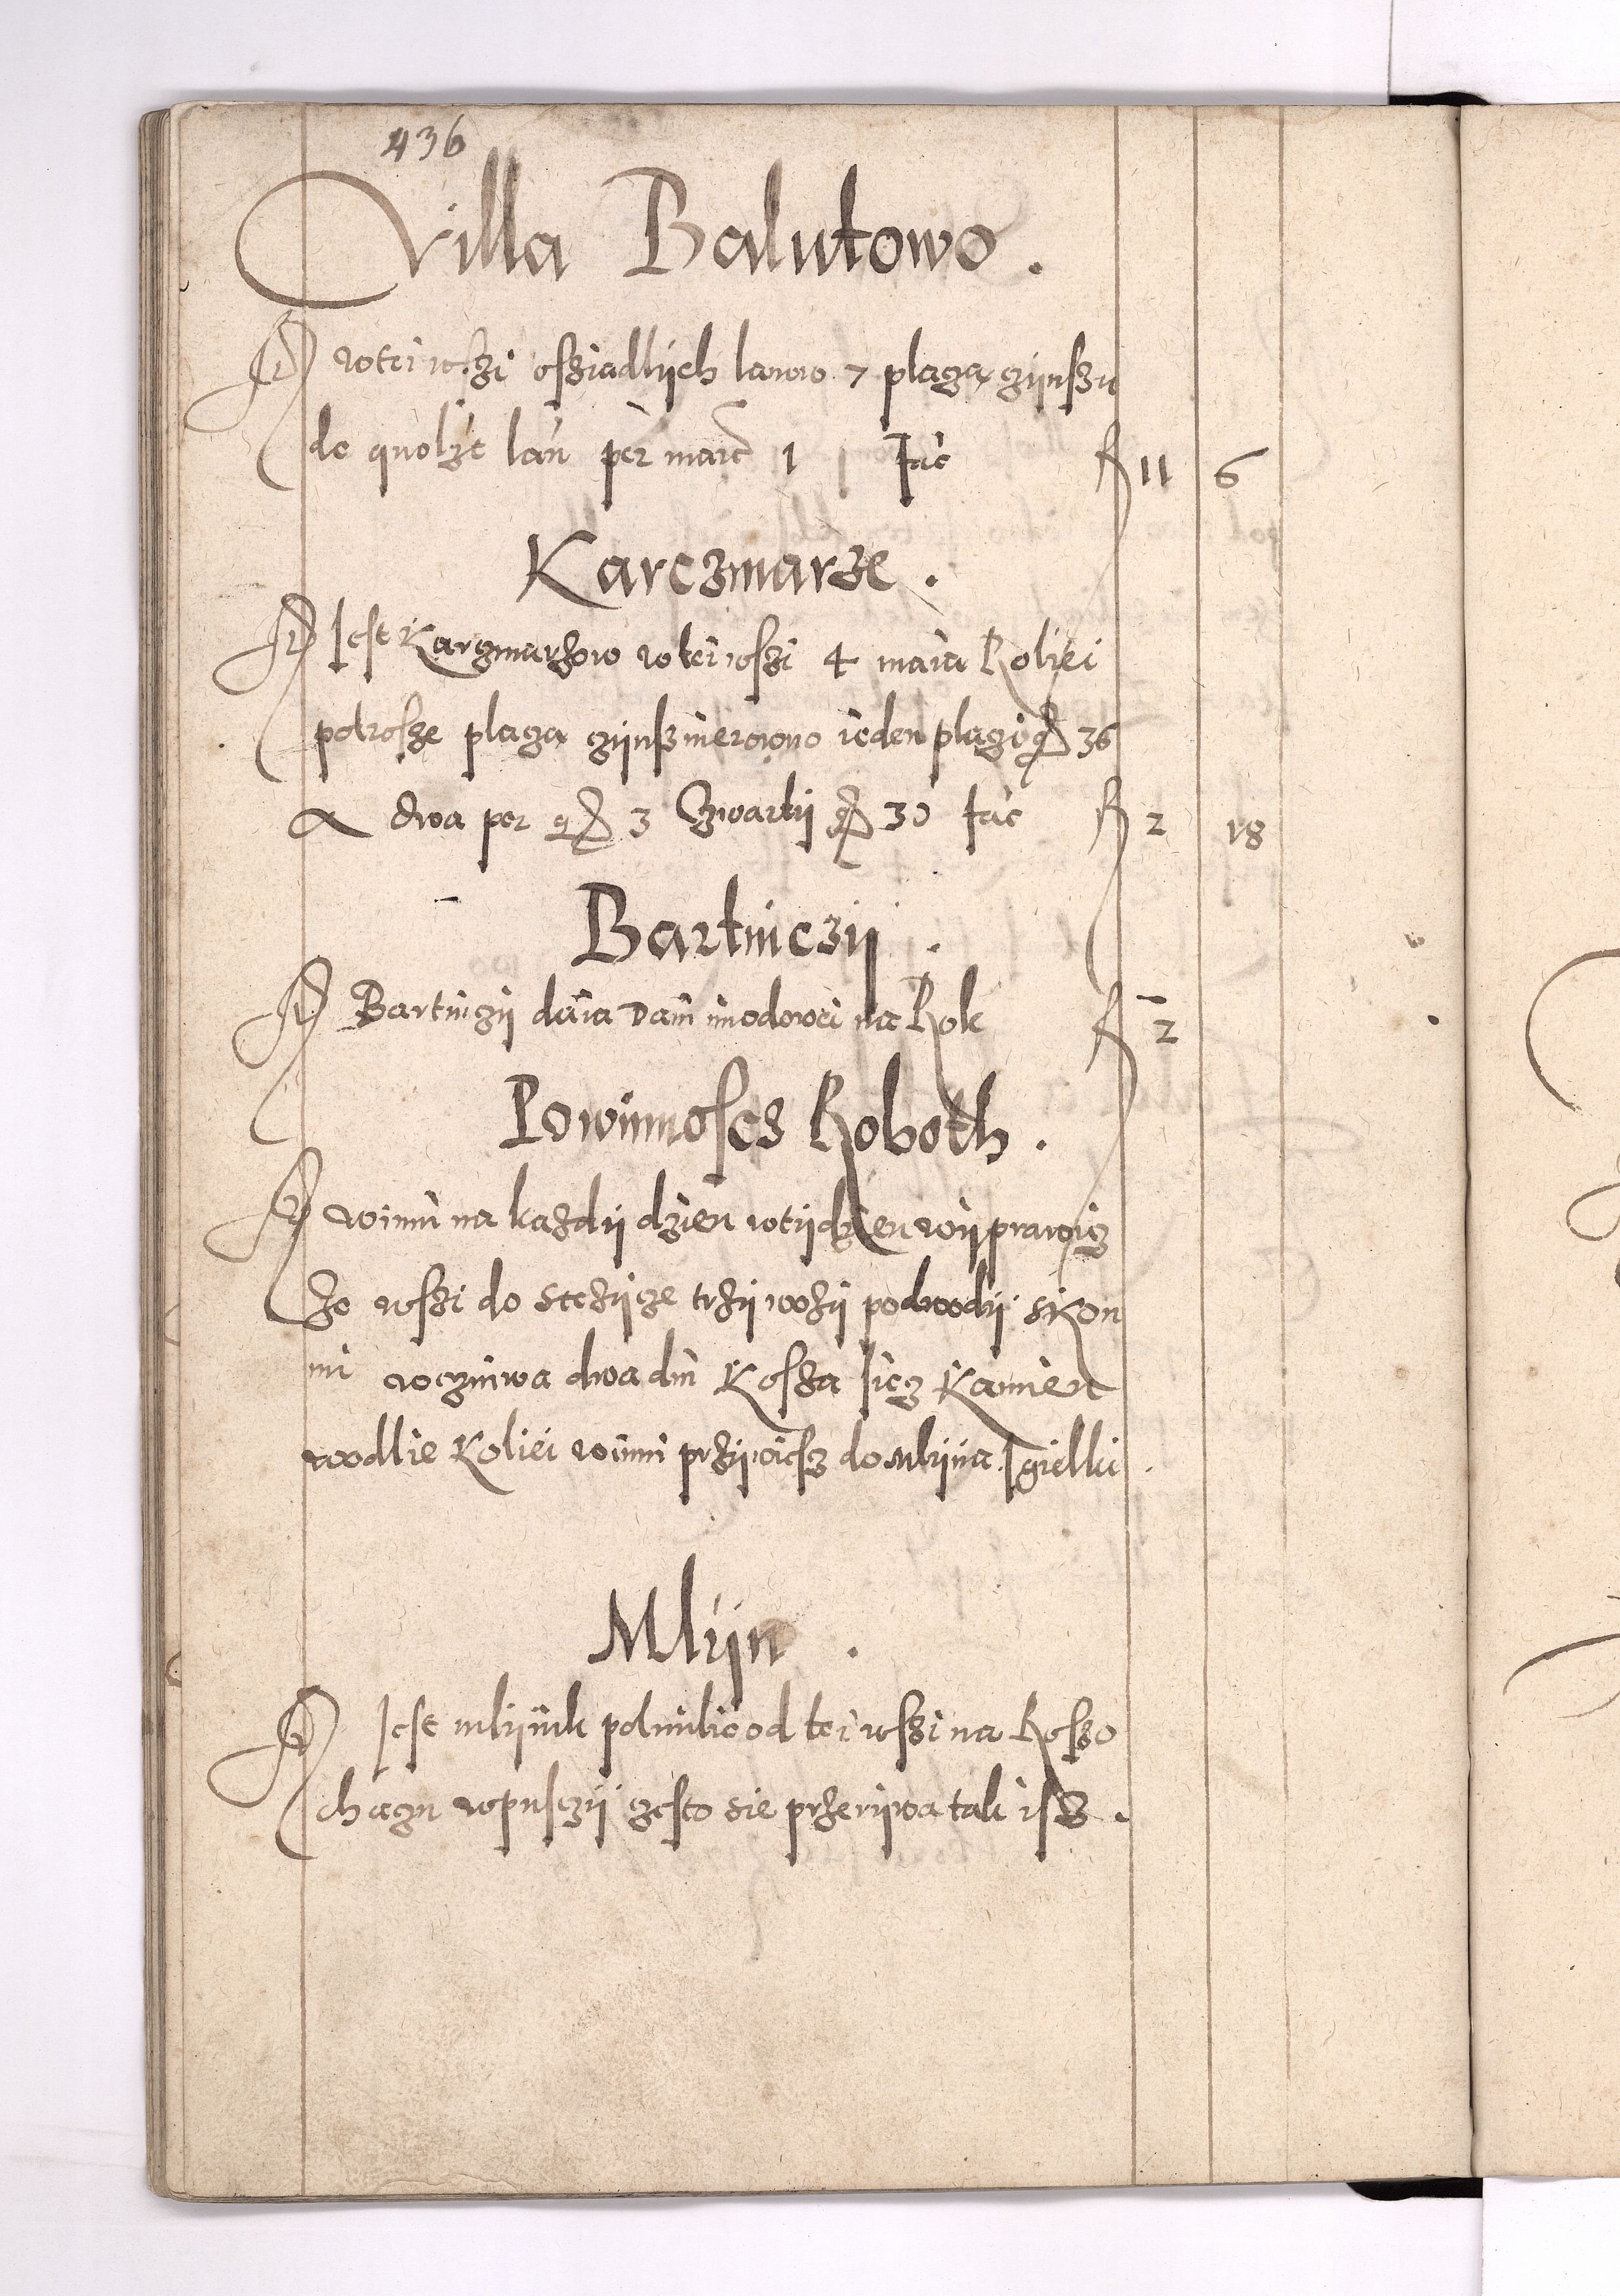 436
Villa Balutowo .
wtei wſzi oſziadlÿch lanow 7 plaga czÿnſzu
de quolze lan per marc 1 fac fl 11 6
Karczmarze .
Jeſt Karczmarzow wtei wſzi 4 maia Roliei
potroſze plaga czÿnſz nierowno ieden plagi gr 36
A dwa per gr 3 Czwartÿ gr 30 fac fl 2 18
Bartniczÿ .
Bartniczÿ daia Dani miodowei na Rok fl 2
Powinnoſcz Roboth .
winni na kazdÿ dzien wtÿdzien wÿprawicz
ze wſzi do Stezÿcze trzÿ wozÿ podwodÿ skon
mi wczniwa dwa dni Koſza ſiecz Kamien
wodlie Koliei winni przÿwieſz do mlÿna Jgielki .
Mlÿn .
Jeſt mlÿnik polmilie od tei wſzi na Roſzo
chaczu wpuſczÿ czeſto sie przerÿwa tak iſz .